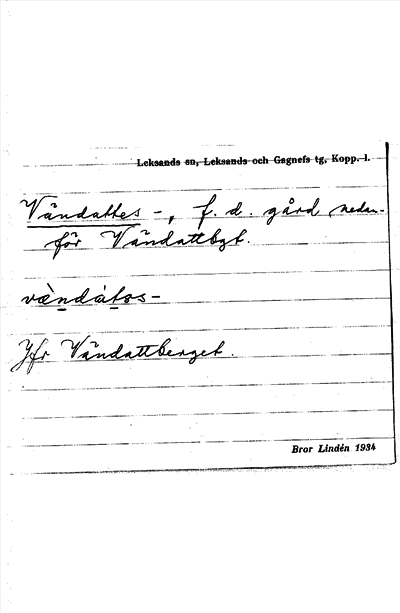 Leksands sn, Leksands och Gagnefs tg, Kopp. l.
Vändattes -, f. d. gård nedan-
för Vändattbgt.
væ̀ndátəs-
Jfr Vändattberget.
Bror Lindén 1934